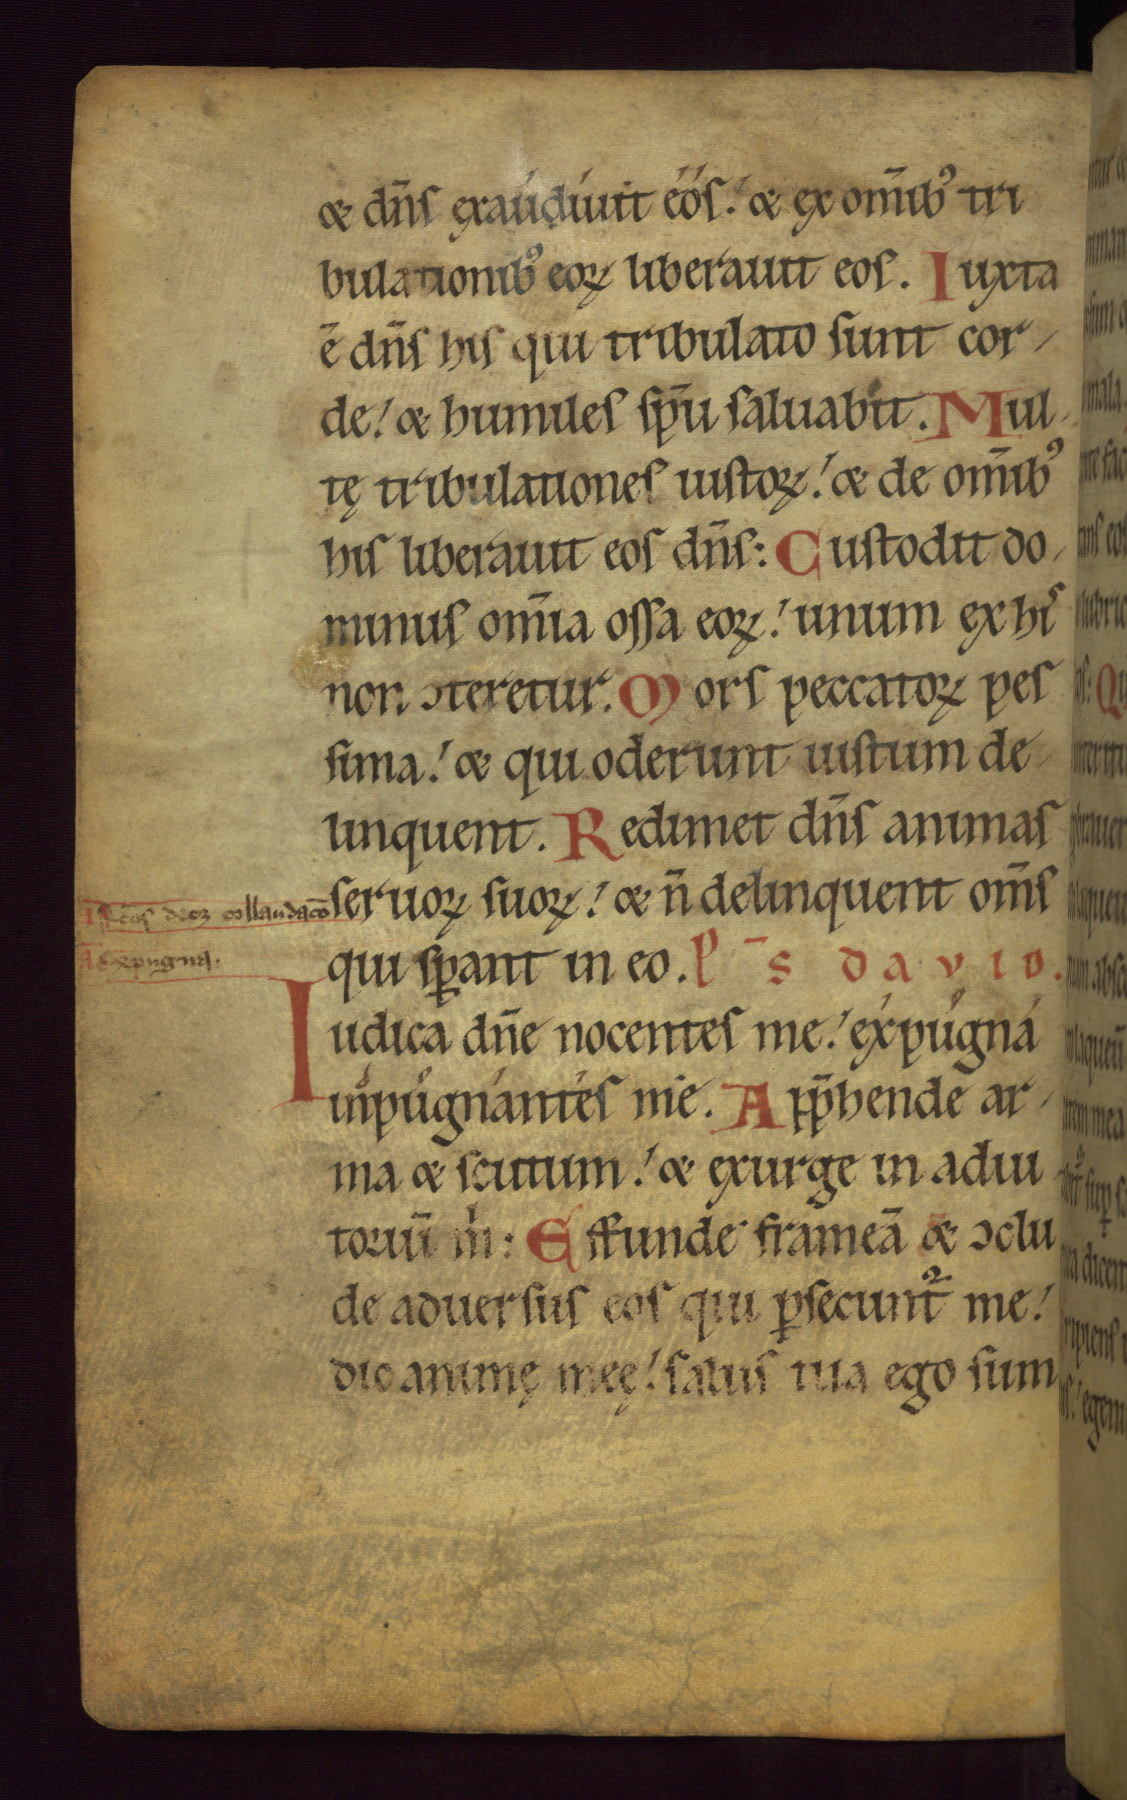 & dn̄s exaúdíuit éós! & ex om̄ib⁹ tri
bulationib⁹ eoꝝ liberauit eos. Iuxta
ē dn̄s his qui tribulato sunt cor-
de! & humiles sp̄u saluabit. Mul-
tę tribulationes iustoꝝ! & de om̄ib⁹
his liberauit eos dn̄s: Custodit do-
minus om̄ia ossa eoꝝ! unum ex his
non ↄteretur. Mors peccatoꝝ pes
sima! & qui oderunt iustum de-
linquent. Redimet dn̄s animas
seruoꝝ suoꝝ! & n̄ delinquent om̄s
qui sꝑant in eo. P̄s dauid.
collaudatō
A Expugna.
Iudica dn̄e nocentes me! éxpúgná
inpúgnántés me. App̄hende ar-
ma & scutum! & exurge in adiu
toriū m̄: Effunde frameā & ↄclu
de aduersus eos qui ꝑsecunt᷑ me!
dic animę meę! salus tua ego sum